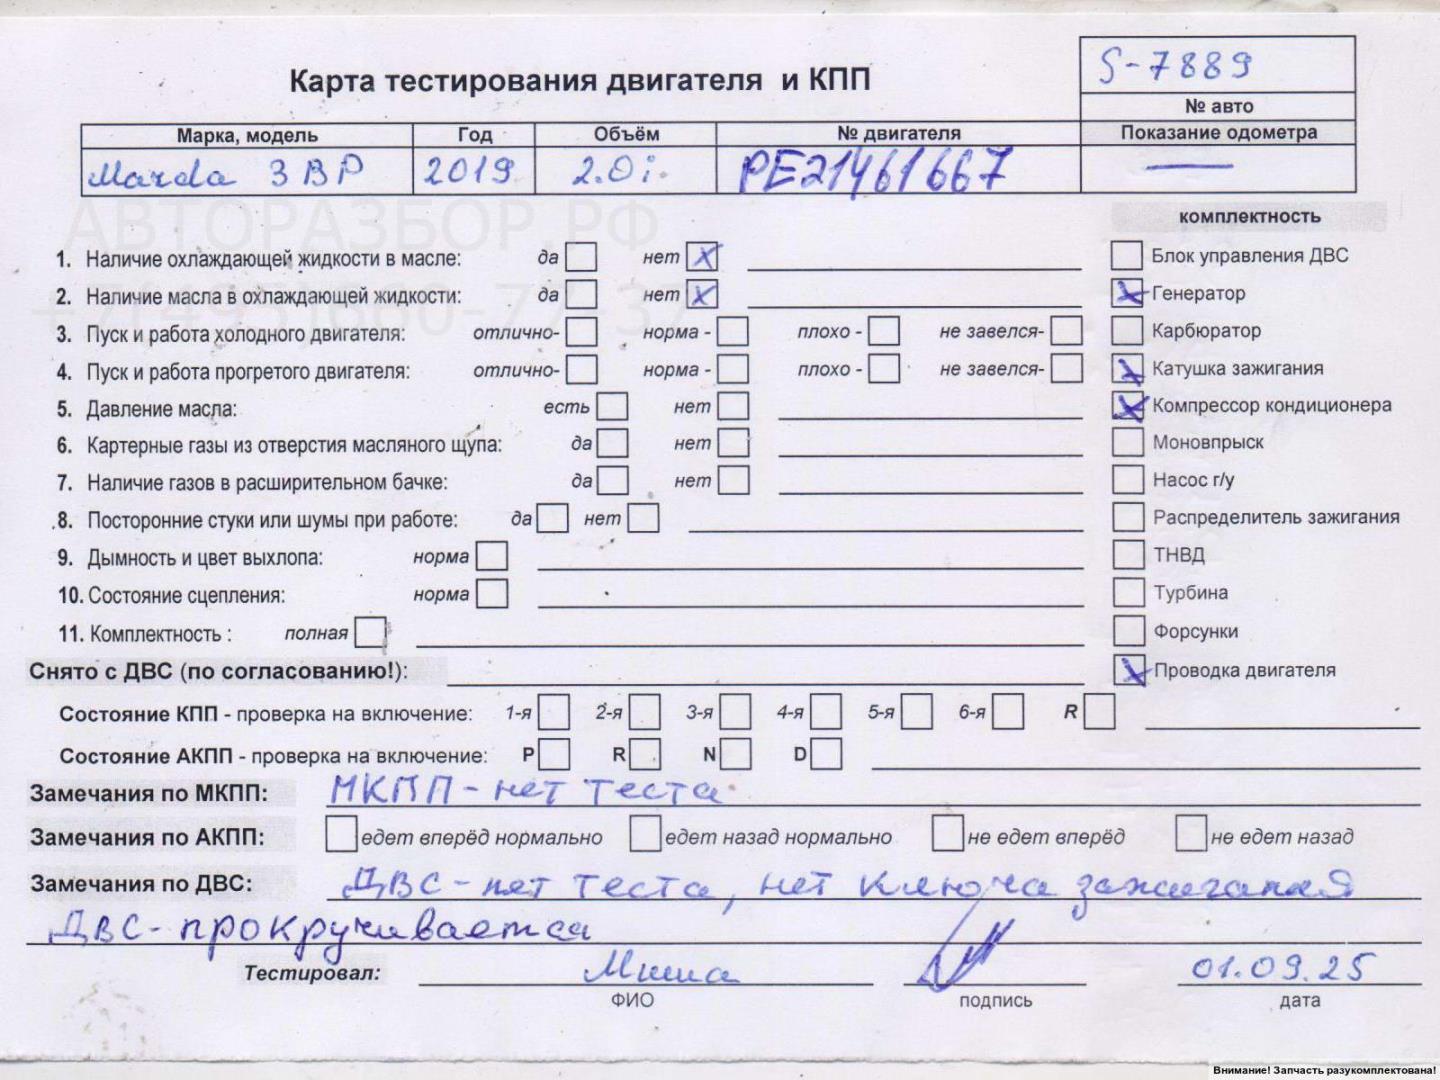 S-7889
Карта тестирования двигателя и КПП
№ авто
Марка, модель Год Объём № двигателя Показание одометра
Mazda 3 BP 2019 2.0i. PE21461667 —
АВТОРАЗБОР.РФ
+7(495)660-77-37
комплектность
1. Наличие охлаждающей жидкости в масле: да нет X Блок управления ДВС
2. Наличие масла в охлаждающей жидкости: да нет X X Генератор
3. Пуск и работа холодного двигателя: отлично- норма - плохо - не завелся- Карбюратор
4. Пуск и работа прогретого двигателя: отлично- норма - плохо - не завелся- X Катушка зажигания
5. Давление масла: есть нет X Компрессор кондиционера
6. Картерные газы из отверстия масляного щупа: да нет Моновпрыск
7. Наличие газов в расширительном бачке: да нет Насос г/у
8. Посторонние стуки или шумы при работе: да нет Распределитель зажигания
9. Дымность и цвет выхлопа: норма ТНВД
10. Состояние сцепления: норма Турбина
11. Комплектность : полная Форсунки
Снято с ДВС (по согласованию!): X Проводка двигателя
Состояние КПП - проверка на включение: 1-я 2-я 3-я 4-я 5-я 6-я R
Состояние АКПП - проверка на включение: P R N D
Замечания по МКПП: МКПП - нет теста
Замечания по АКПП: едет вперёд нормально едет назад нормально не едет вперёд не едет назад
Замечания по ДВС: ДВС - нет теста, нет ключа зажигания
ДВС - прокручивается
Тестировал: Миша 01.09.25
ФИО подпись дата
Внимание! Запчасть разукомплектована!